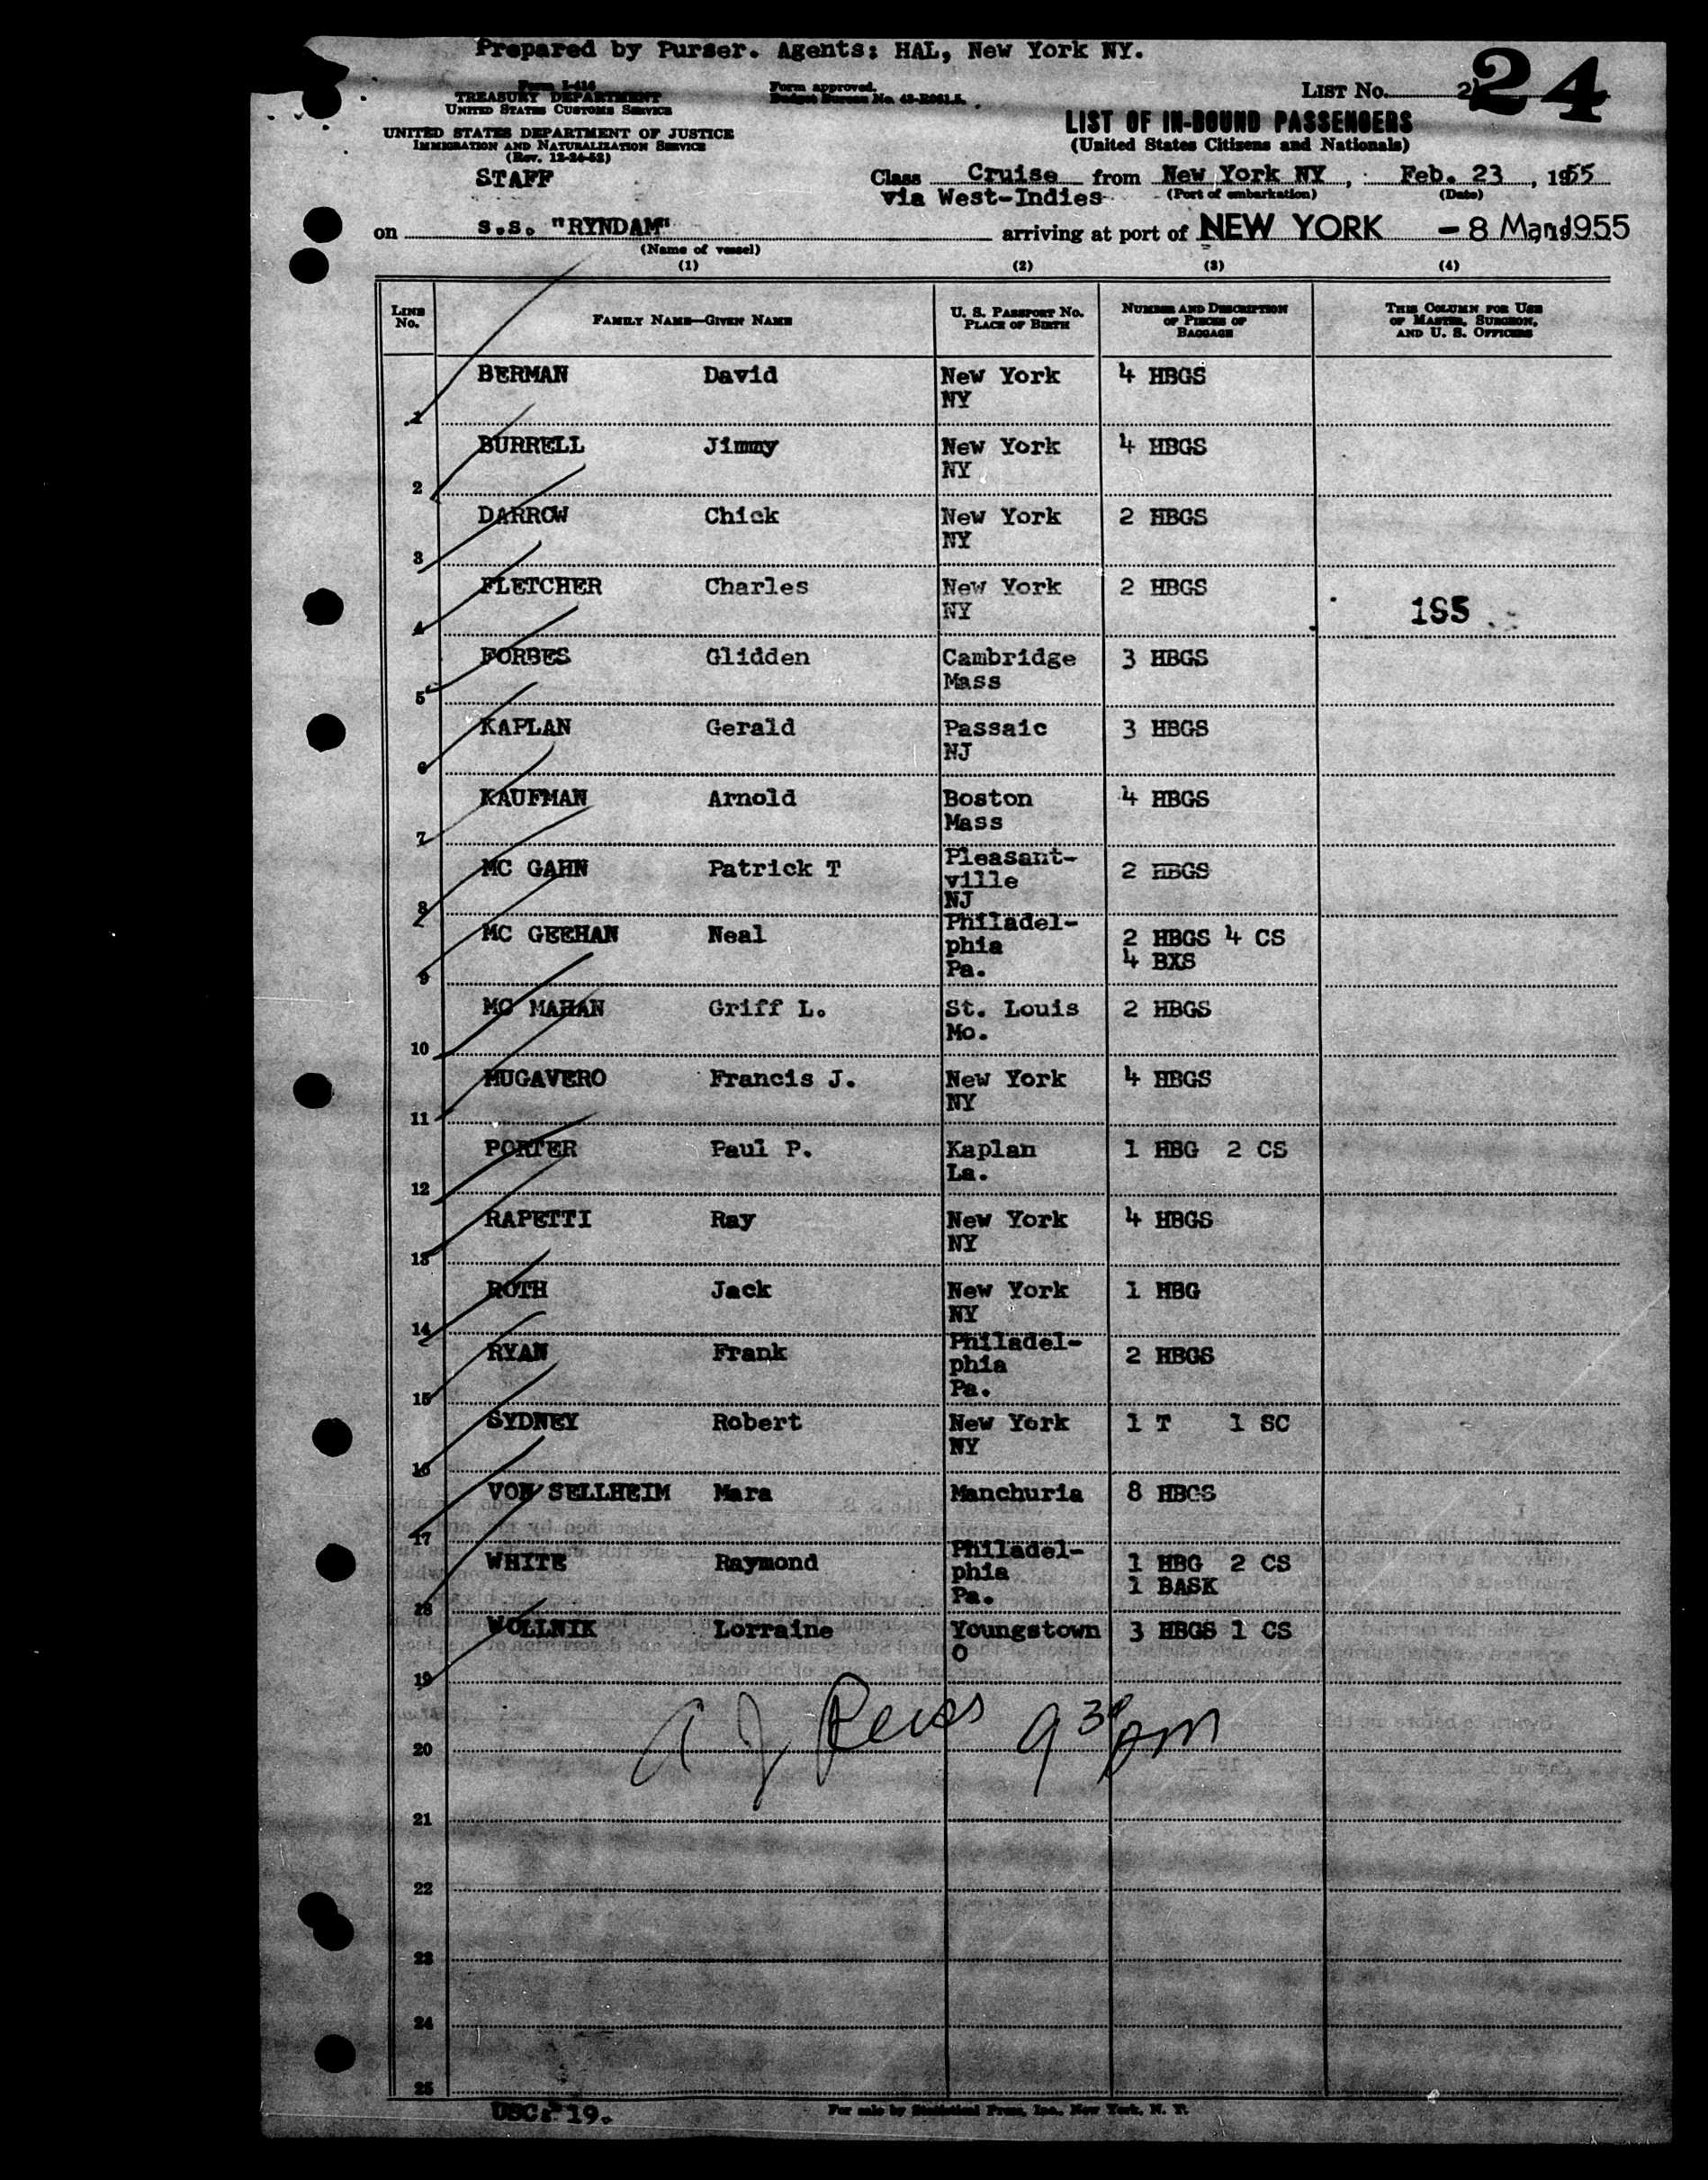 Prepared by Purser. Agents: HAL, New York NY.
Form I-416
TREASURY DEPARTMENT
UNITED STATES CUSTOMS SERVICE
Form approved.
Budget Bureau No. 43-R061.5.
LIST No. 2
24
UNITED STATES DEPARTMENT OF JUSTICE
IMMIGRATION AND NATURALIZATION SERVICE
(Rev. 12-24-52)
LIST OF IN-BOUND PASSENGERS
(United States Citizens and Nationals)
STAFF
Class Cruise from New York NY, Feb. 23, 1955
via West-Indies (Port of embarkation) (Date)
on s.s. "RYNDAM" arriving at port of NEW YORK - 8 Mar 1955
(Name of vessel)
(1) (2) (3) (4)
LINE No. FAMILY NAME—GIVEN NAME U. S. PASSPORT No. PLACE OF BIRTH NUMBER AND DESCRIPTION OF PIECES OF BAGGAGE THIS COLUMN FOR USE OF MASTER, SURGEON, AND U. S. OFFICERS
1 BERMAN David New York NY 4 HBGS
2 BURRELL Jimmy New York NY 4 HBGS
3 DARROW Chick New York NY 2 HBGS
4 FLETCHER Charles New York NY 2 HBGS 195
5 FORBES Glidden Cambridge Mass 3 HBGS
6 KAPLAN Gerald Passaic NJ 3 HBGS
7 KAUFMAN Arnold Boston Mass 4 HBGS
8 MC GAHN Patrick T Pleasant-ville NJ 2 HBGS
9 MC GEEHAN Neal Philadel-phia Pa. 2 HBGS 4 CS 4 BXS
10 MC MAHAN Griff L. St. Louis Mo. 2 HBGS
11 MUGAVERO Francis J. New York NY 4 HBGS
12 PORTER Paul P. Kaplan La. 1 HBG 2 CS
13 RAPETTI Ray New York NY 4 HBGS
14 ROTH Jack New York NY 1 HBG
15 RYAN Frank Philadel-phia Pa. 2 HBGS
16 SYDNEY Robert New York NY 1 T 1 SC
17 VON SELLHEIM Mara Manchuria 8 HBGS
18 WHITE Raymond Philadel-phia Pa. 1 HBG 2 CS 1 BASK
19 WOLLNIK Lorraine Youngstown O 3 HBGS 1 CS
A J Reiss 9 30 pm
20
21
22
23
24
25
USC: 19.
For sale by Statistical Press, Inc., New York, N. Y.